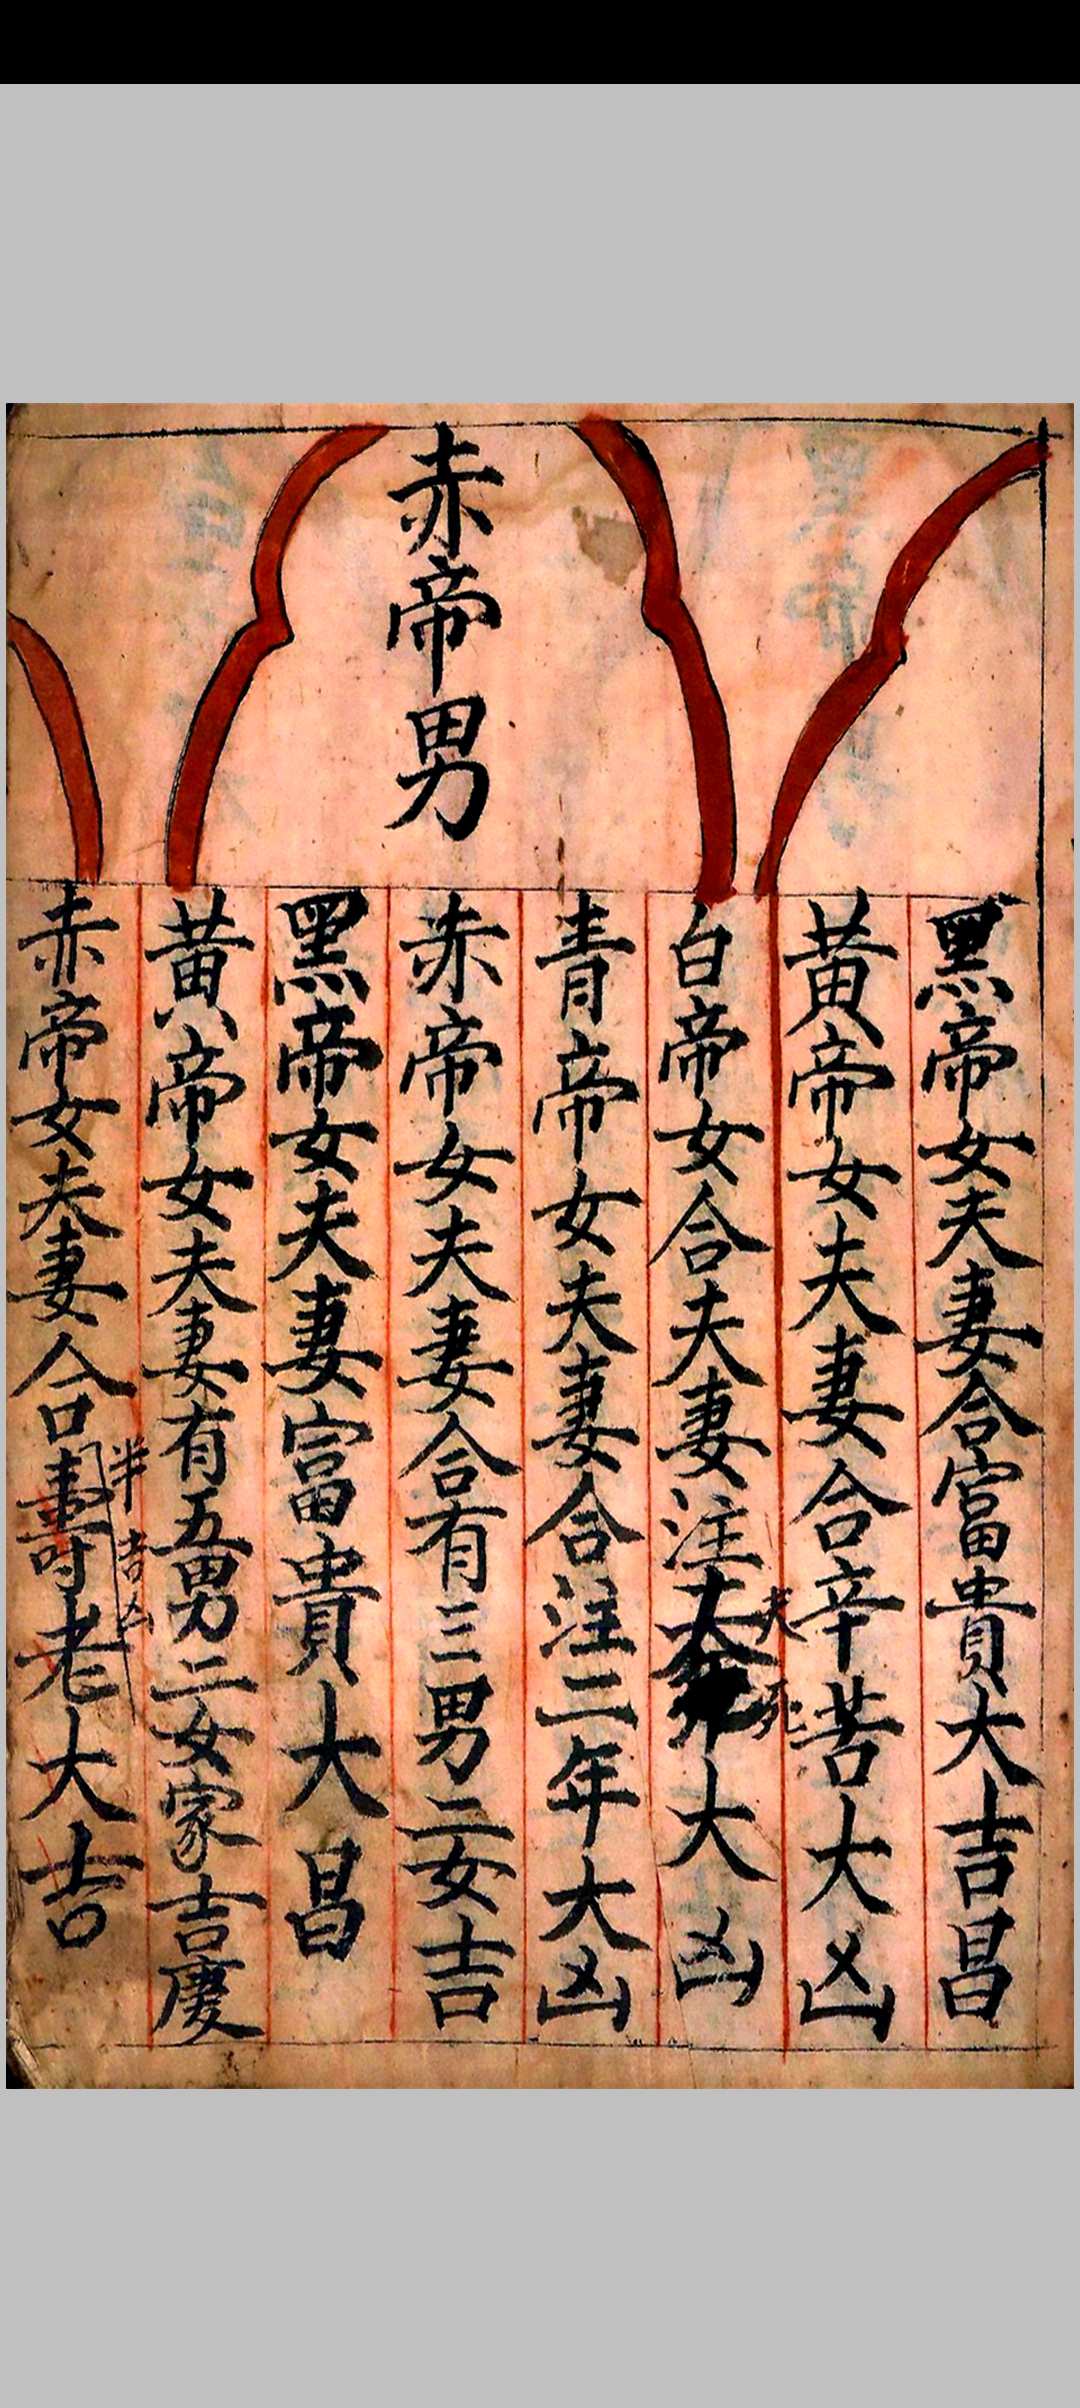 赤帝男
黑帝女夫妻合富貴大吉昌
黃帝女夫妻合辛苦大凶
白帝女合夫妻注大凶
夫死
青帝女夫妻合注二年大凶
赤帝女夫妻合有三男二女吉
黑帝女夫妻富貴大昌
黃帝女夫妻有五男二女家吉慶
半吉凶
赤帝女夫妻合壽老大吉